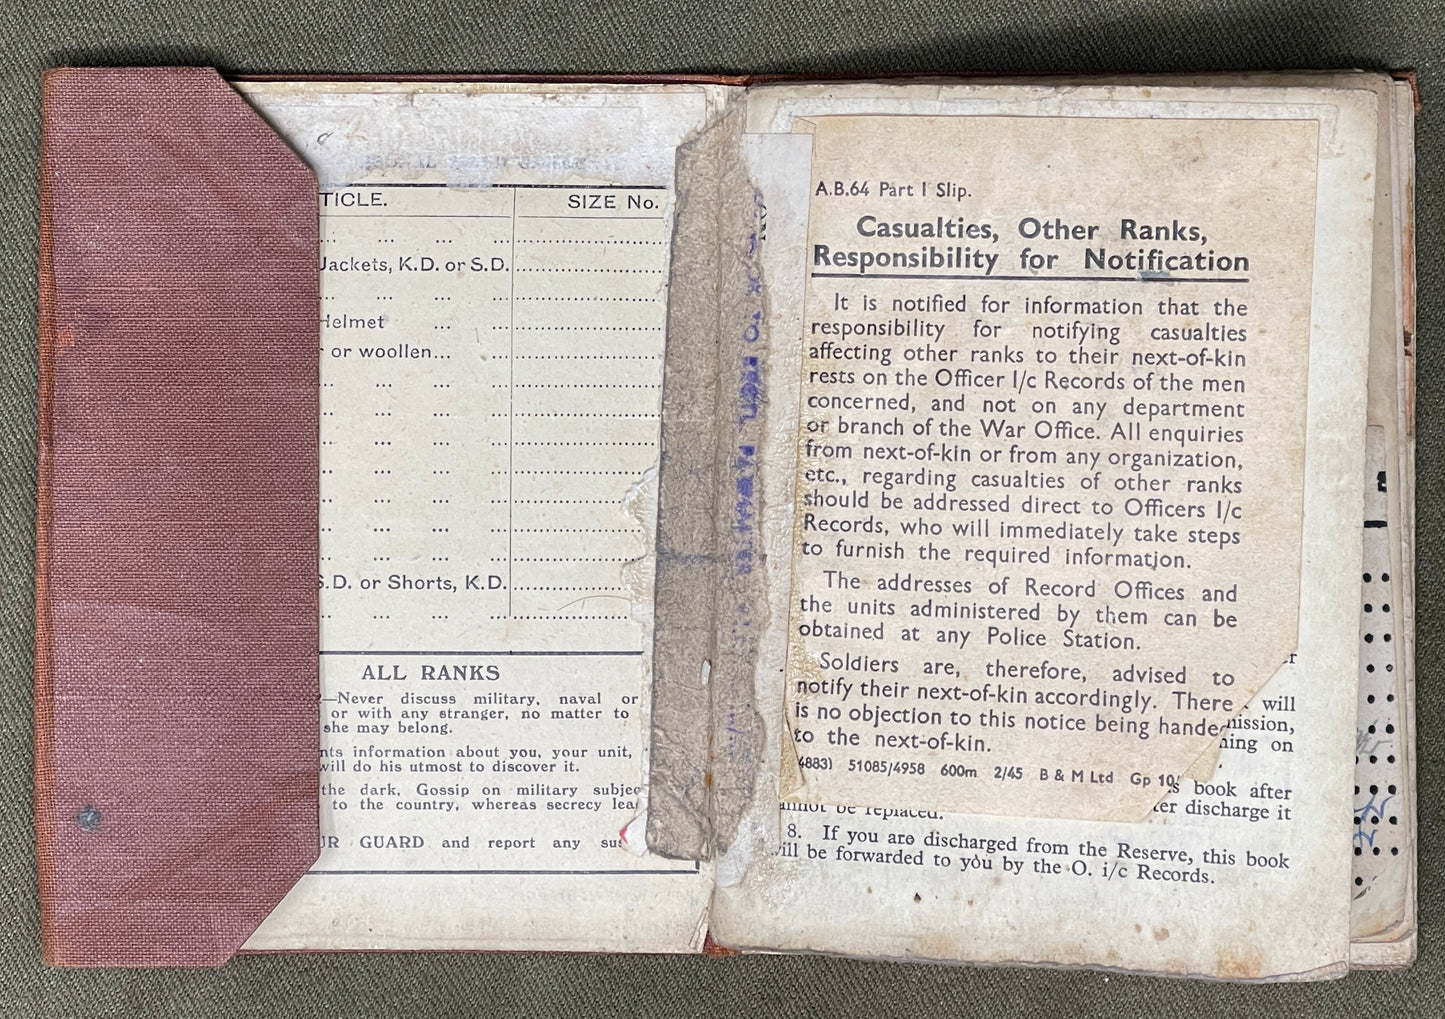 TICLE. SIZE No.
... ... ... ...
Jackets, K.D. or S.D.
... ... ...
Helmet ... ...
or woollen... ...
... ... ...
... ... ...
... ... ...
... ... ...
... ... ...
... ... ...
... ... ...
S.D. or Shorts, K.D.
... ... ...
ALL RANKS
—Never discuss military, naval or
or with any stranger, no matter to
she may belong.
nts information about you, your unit,
will do his utmost to discover it.
the dark, Gossip on military subjec
to the country, whereas secrecy lea
UR GUARD and report any sus
A.B.64 Part I Slip.
Casualties, Other Ranks,
Responsibility for Notification
It is notified for information that the
responsibility for notifying casualties
affecting other ranks to their next-of-kin
rests on the Officer I/c Records of the men
concerned, and not on any department
or branch of the War Office. All enquiries
from next-of-kin or from any organization,
etc., regarding casualties of other ranks
should be addressed direct to Officers I/c
Records, who will immediately take steps
to furnish the required information.
The addresses of Record Offices and
the units administered by them can be
obtained at any Police Station.
Soldiers are, therefore, advised to
notify their next-of-kin accordingly. There
is no objection to this notice being hande
to the next-of-kin.
4883) 51085/4958 600m 2/45 B & M Ltd Gp 10
will
mission,
ning on
book after
discharge it
annot be replaced.
8. If you are discharged from the Reserve, this book
will be forwarded to you by the O. i/c Records.